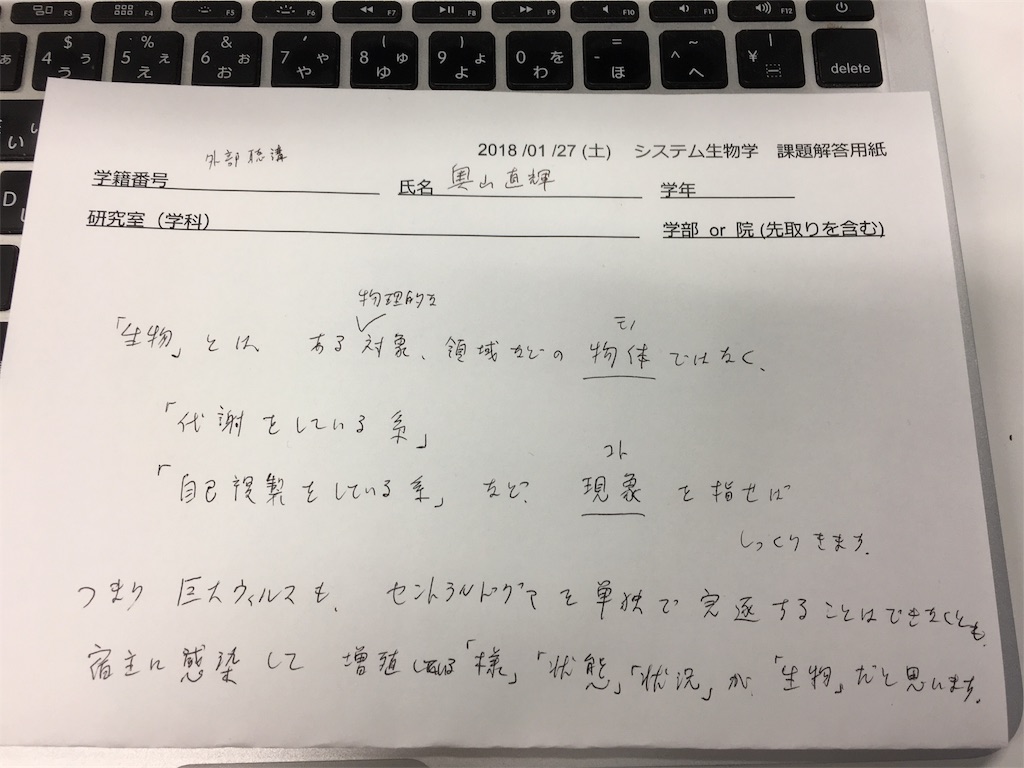 F3 F4 F5 F6 F7 F8 F9 F10 F11 F12
あ $ 4 う % 5 え & 6 お ' 7 や ( 8 ゆ ) 9 よ 0 を わ = - ほ ~ ^ へ | ¥ delete
い
D
2018 /01 /27 (土) システム生物学 課題解答用紙
外部聴講
学籍番号 氏名 奥山直輝 学年
研究室（学科） 学部 or 院 (先取りを含む)
物理的な
モノ
「生物」とは、ある対象、領域などの物体ではなく、
「代謝をしている系」
コト
「自己複製をしている系」など、現象を指せば
しっくりきます。
つまり巨大ウィルスも、セントラルドグマを単独で完遂することはできなくとも、
宿主に感染して増殖している「様」「状態」「状況」が、「生物」だと思います。